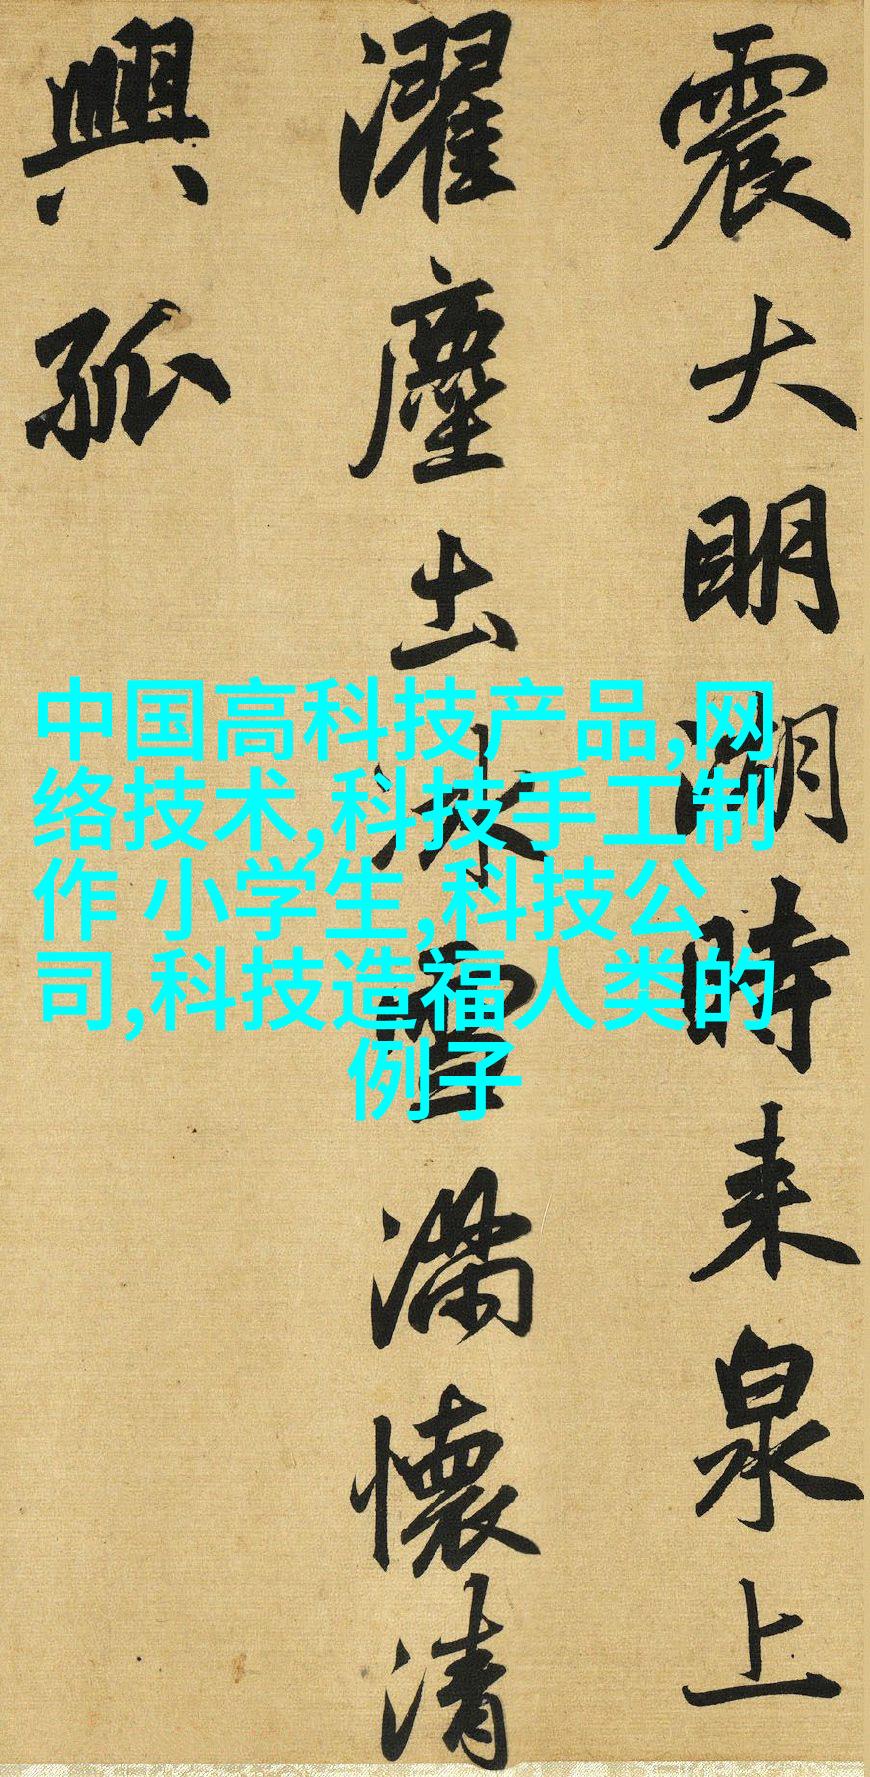 震大明湖時来泉上
濯塵土冰雪滿懷清
興孤
中国高科技产品,网
络技术,科技手工制
作 小学生,科技公
司,科技造福人类的
例子